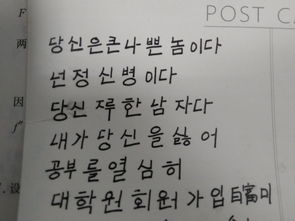 F
POST C
两
당신은큰나쁜놈이다
넌정신병이다
因
당신 한남자다
f"
내가당신을싫어
공부를열심히
设
대학원회원가입白富美